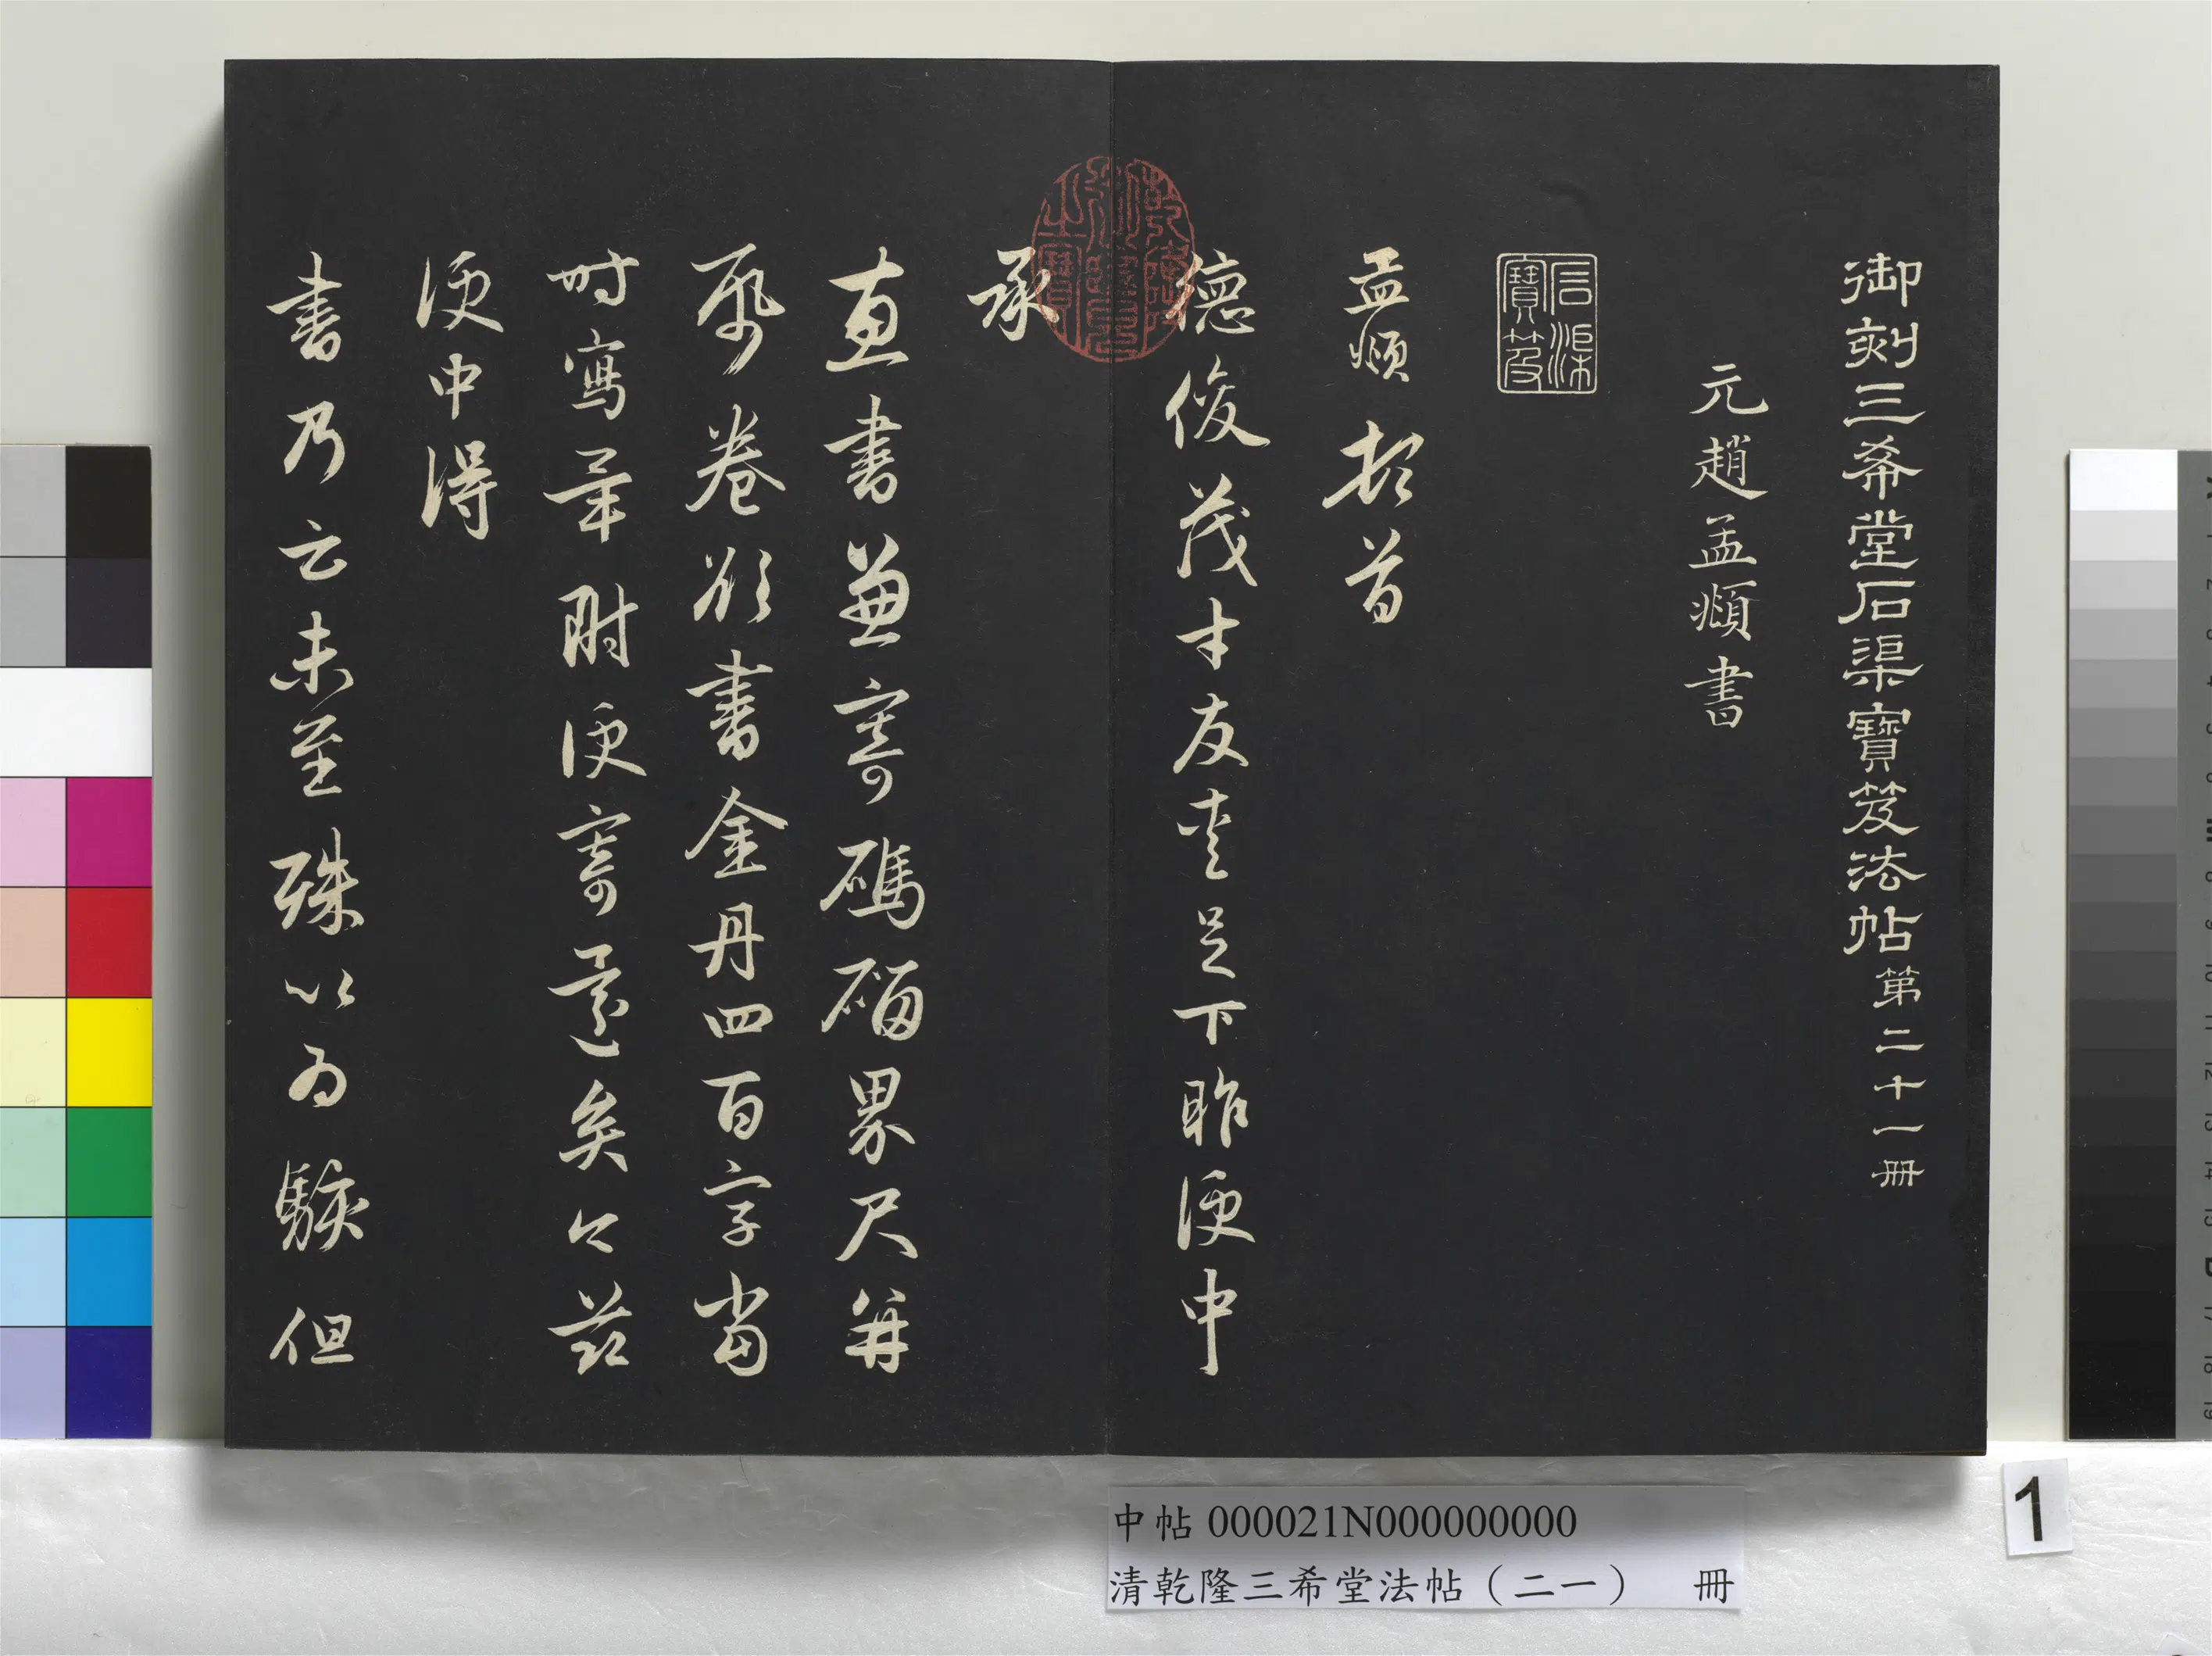 御刻三希堂石渠寶笈法帖第二十一冊
元趙孟頫書
石渠寶笈
孟頫頓首
德俊茂才友愛足下昨便中
承
惠書兼寄碼碯界尺并
紙卷欲書金丹四百字當
時寫畢附便寄還矣今茲
便中得
書乃云未至殊以為駭但
乾隆御覽之寶
中帖 000021N000000000
清乾隆三希堂法帖（二一） 冊
1